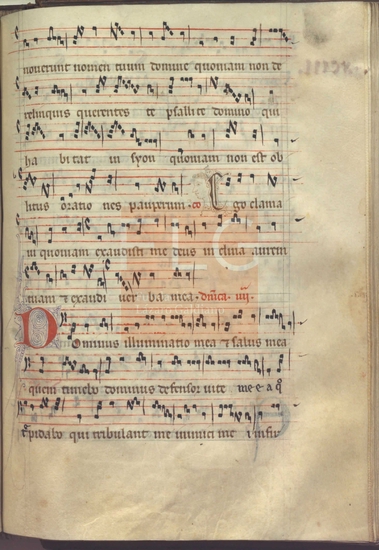 noverunt nomen tuum domine quoniam non de
relinquis querentes te psallite domino qui
ha bi tat in syon quoniam non est ob
litus oratio nes pauperum. co Ego clama
ui quoniam exaudisti me deus in clina aurem
tuam & exaudi ver ba mea. dnica. iiii.
Dominus illuminatio mea & salus mea
quem timebo dominus defensor vite me e a q
trepidabo qui tribulant me inimici me i infir